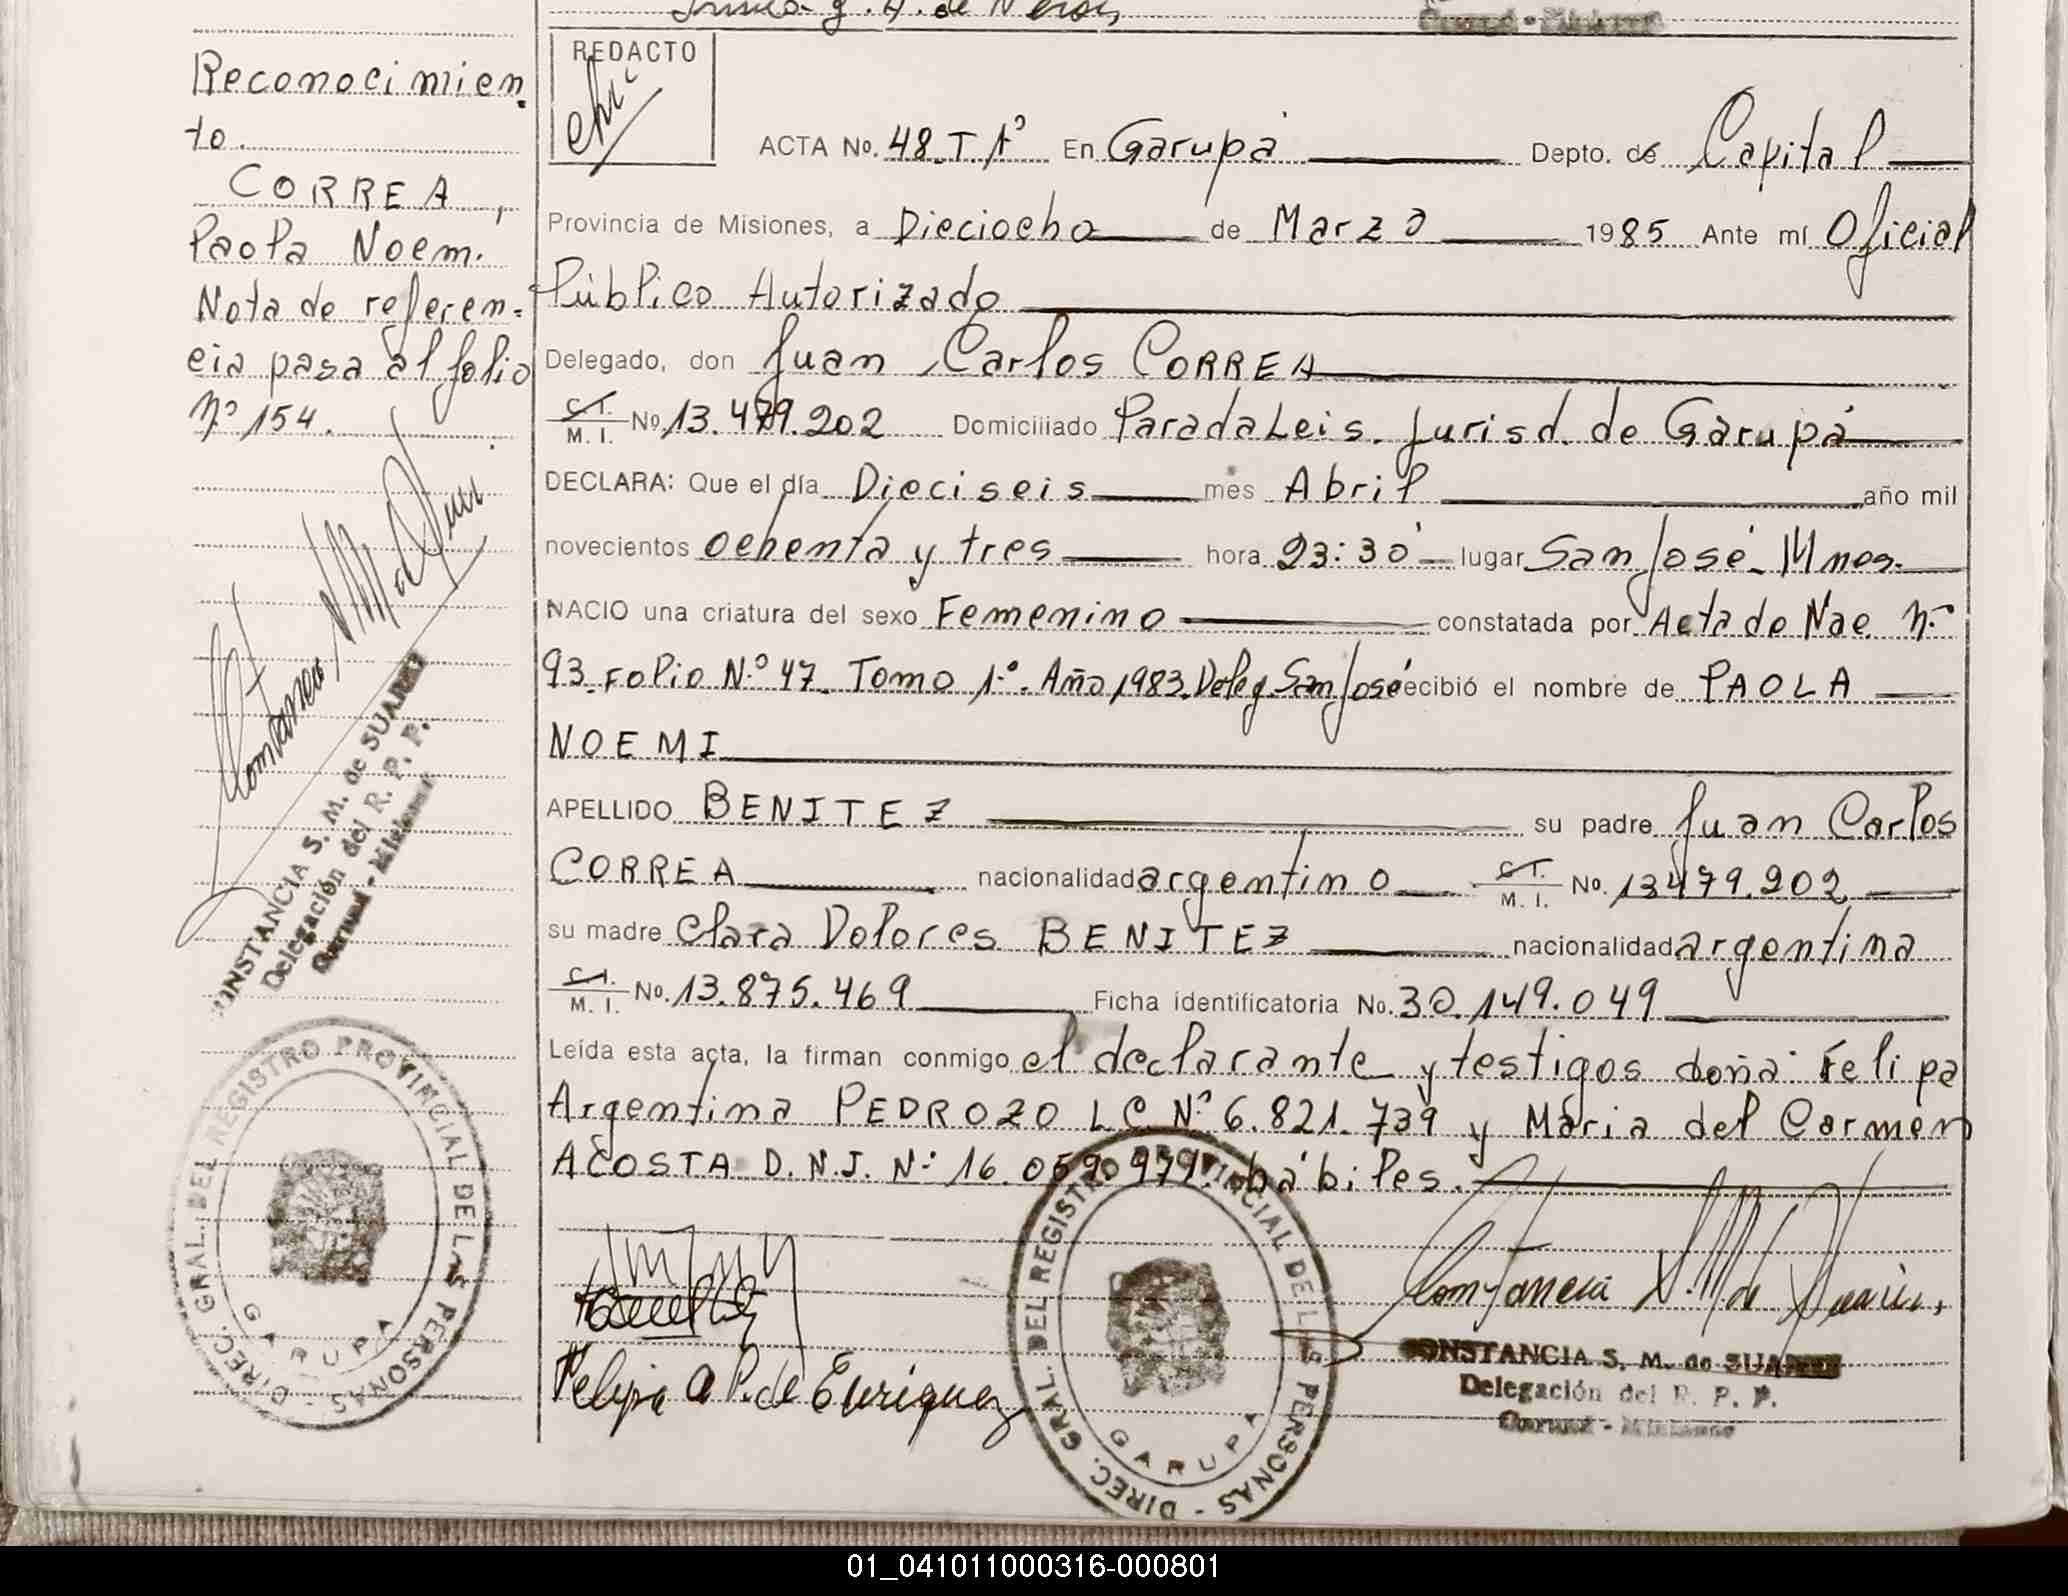 Reconocimien
to.
CORREA,
Paola Noem.
Nota de referen-
cia pasa al folio
Nº 154.
CONSTANCIA S. M. de SUAREZ
Delegación del R. P. P.
Garupá - Misiones
DIREC. GRAL. DEL REGISTRO PROVINCIAL DE LAS PERSONAS -
GARUPA
REDACTO
ACTA No. 48_T.1º En Garupá Depto. de Capital
Provincia de Misiones, a Dieciocho de Marzo 1985 Ante mí Oficial
Público Autorizado
Delegado, don Juan Carlos CORREA
C.I. M. I. No. 13.479.202 Domiciliado Parada Leis. Jurisd. de Garupá
DECLARA: Que el día Dieciseis mes Abril año mil
novecientos ochenta y tres hora 23:30 lugar San José - Mnes.
NACIO una criatura del sexo Femenino constatada por Acta de Nac. Nº
93. Folio N.º 47. Tomo 1º. Año 1983. Deleg. San José recibió el nombre de PAOLA
NOEMI
APELLIDO BENITEZ su padre Juan Carlos
CORREA nacionalidad argentino C.I. M. I. No. 13479.202
su madre Clara Dolores BENITEZ nacionalidad argentina
C.I. M. I. No. 13.875.469 Ficha identificatoria No. 30.149.049
Leída esta acta, la firman conmigo el declarante y testigos doña Felipa
Argentina PEDROZO LC.Nº 6.821.739 y Maria del Carmen
ACOSTA D.N.I. Nº 16.059.971. hábiles.
Felipa A P. de Enriquez
DIREC. GRAL. DEL REGISTRO PROVINCIAL DE LAS PERSONAS -
GARUPA
Constancia S. M de Suarez
CONSTANCIA S. M. de SUAREZ
Delegación del R. P. P.
Garupá - Misiones
01_041011000316-000801